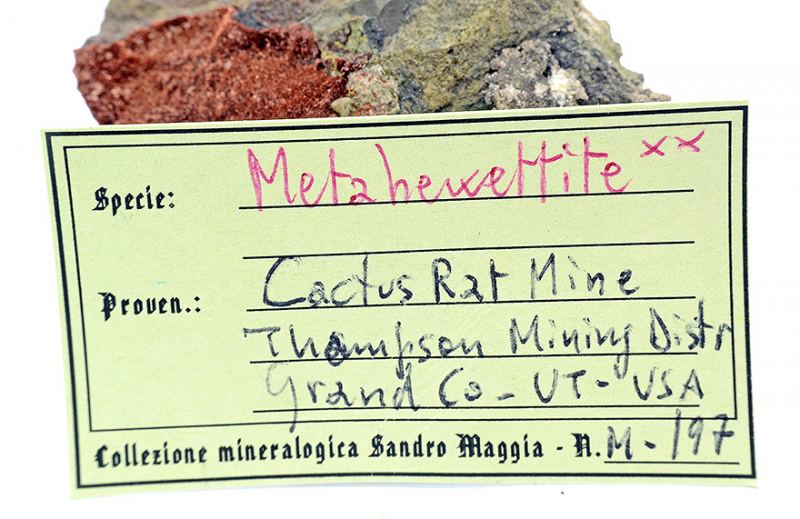 Specie: Metahewettite xx
Proven.: Cactus Rat Mine
Thompson Mining Distr
Grand Co - UT - USA
Collezione mineralogica Sandro Maggia - N. M-197